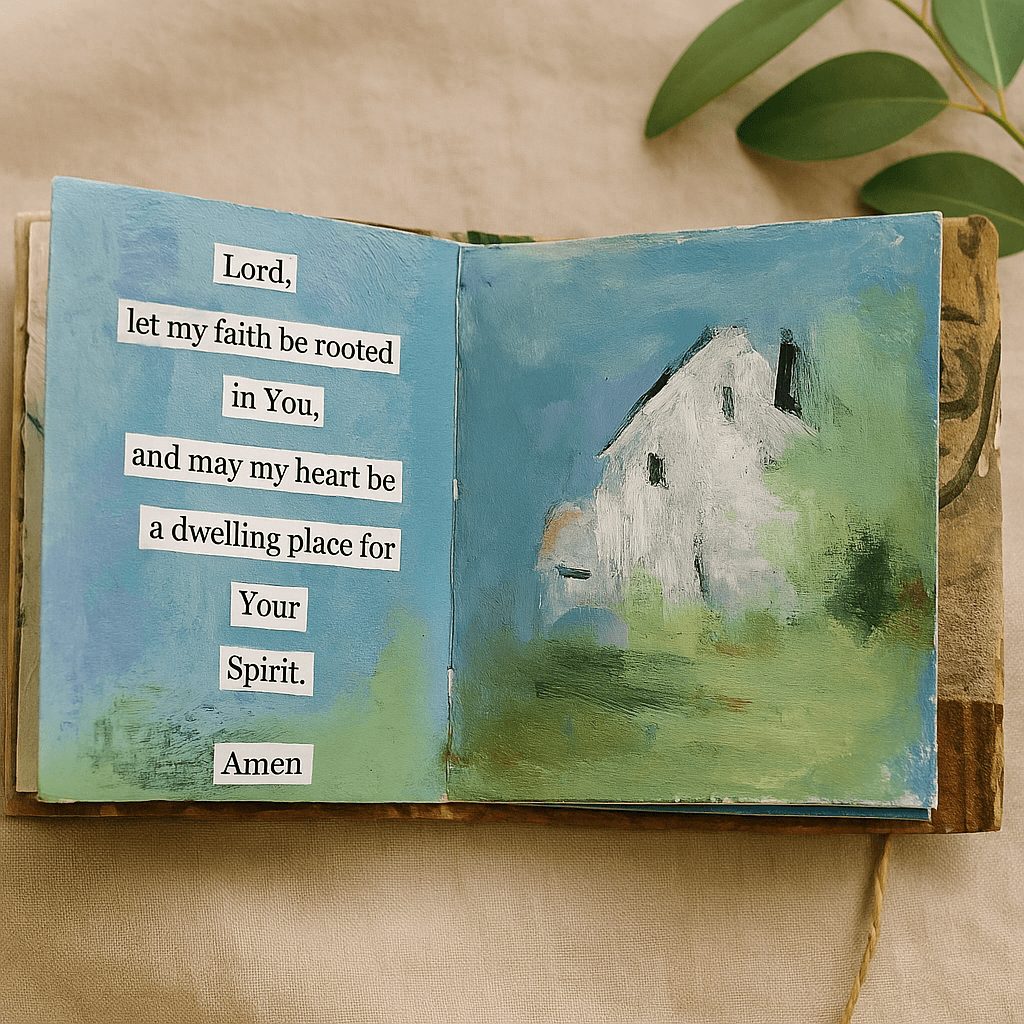 Lord,
let my faith be rooted
in You,
and may my heart be
a dwelling place for
Your
Spirit.
Amen